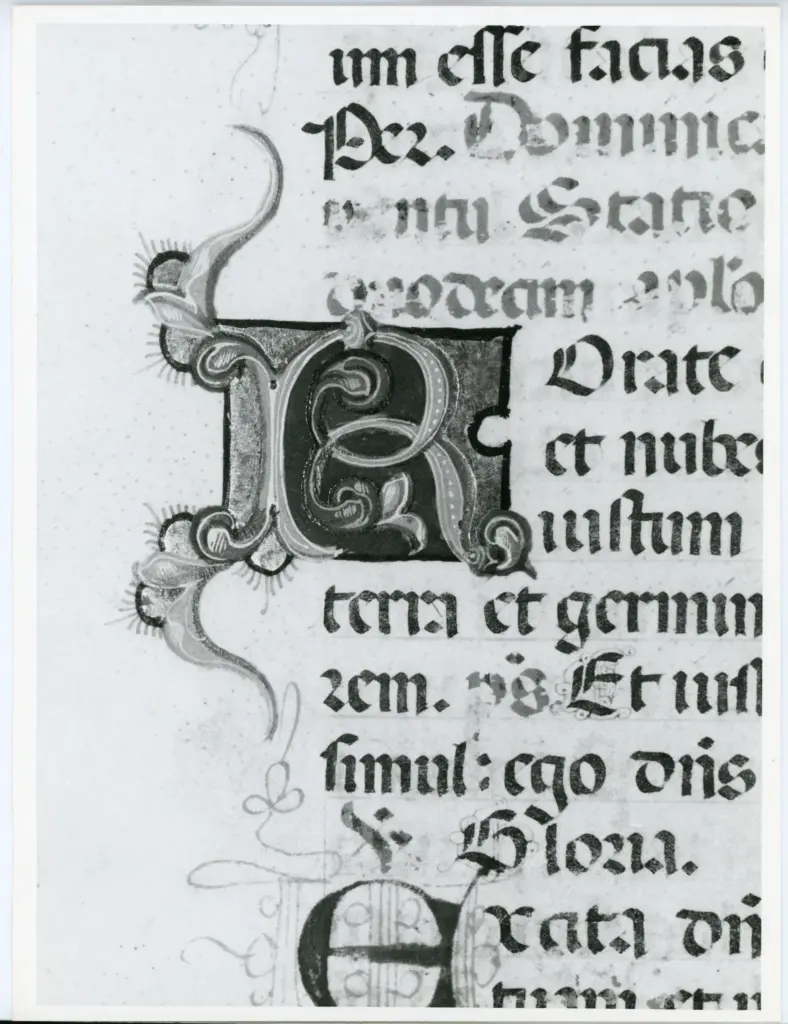 um esse facias
Per. Dominica
uentu Statio
duodecim aplo
ROrate
et nube
iustum
terra et germin
rem. ps. Et iust
simul: ego dns
℣ Gloria.
Excita dn
tuam et u